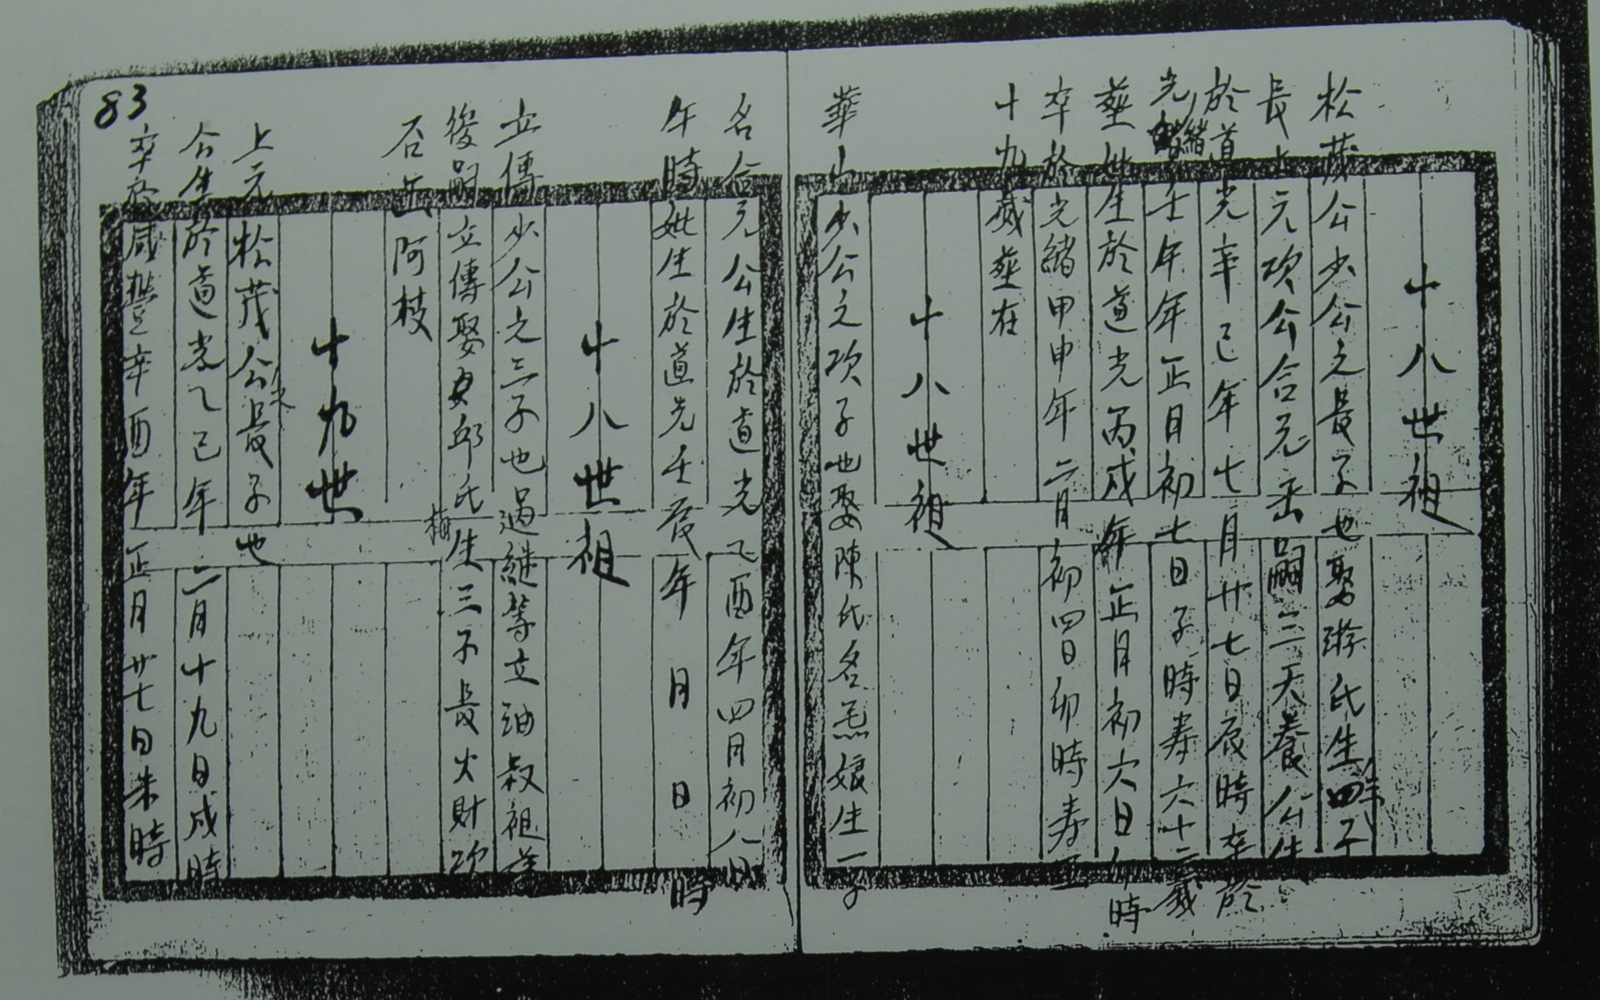 十八世祖
松茂公少公之長子也娶游氏生四子
長上元次公合元 嗣三天養公生
於道光辛巳年七月廿七日辰時卒於
光緒壬午年正月初七日子時壽六十二歲
塟妣生於道光丙戌年正月初六日午時
卒於光緒甲申年二月初四日卯時壽五
十九歲塟在
十八世祖
華山少公之次子也娶陳氏名 娘生一子
名合元公生於道光乙酉年四月初八日
午時妣生於道光壬 年 月 日 時
十八世祖
立傳少公之三子也過継等立 叔祖為
後嗣立傳娶 邱氏 生三子長火財次
石 阿枝
梅
十九世
上元松茂公長子也
公生於道光乙巳年二月十九日戌時
卒於咸豐辛酉年正月廿七日未時
83